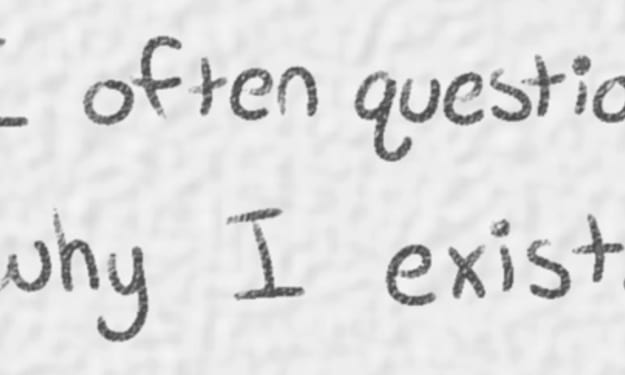 I often questio
why I exist.